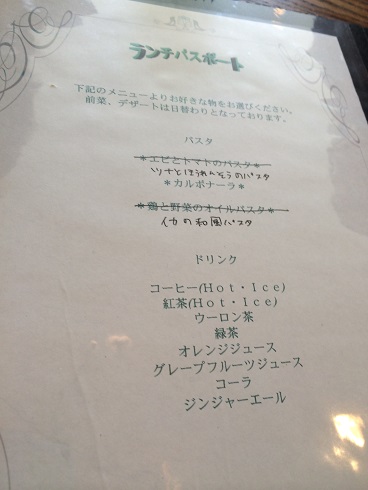 ランチパスポート
下記のメニューよりお好きな物をお選びください。
前菜、デザートは日替わりとなっております。
パスタ
*エビとトマトのパスタ*
ツナとほうれんそうのパスタ
*カルボナーラ*
*鶏と野菜のオイルパスタ*
イカの和風パスタ
ドリンク
コーヒー(Hot・Ice)
紅茶(Hot・Ice)
ウーロン茶
緑茶
オレンジジュース
グレープフルーツジュース
コーラ
ジンジャーエール